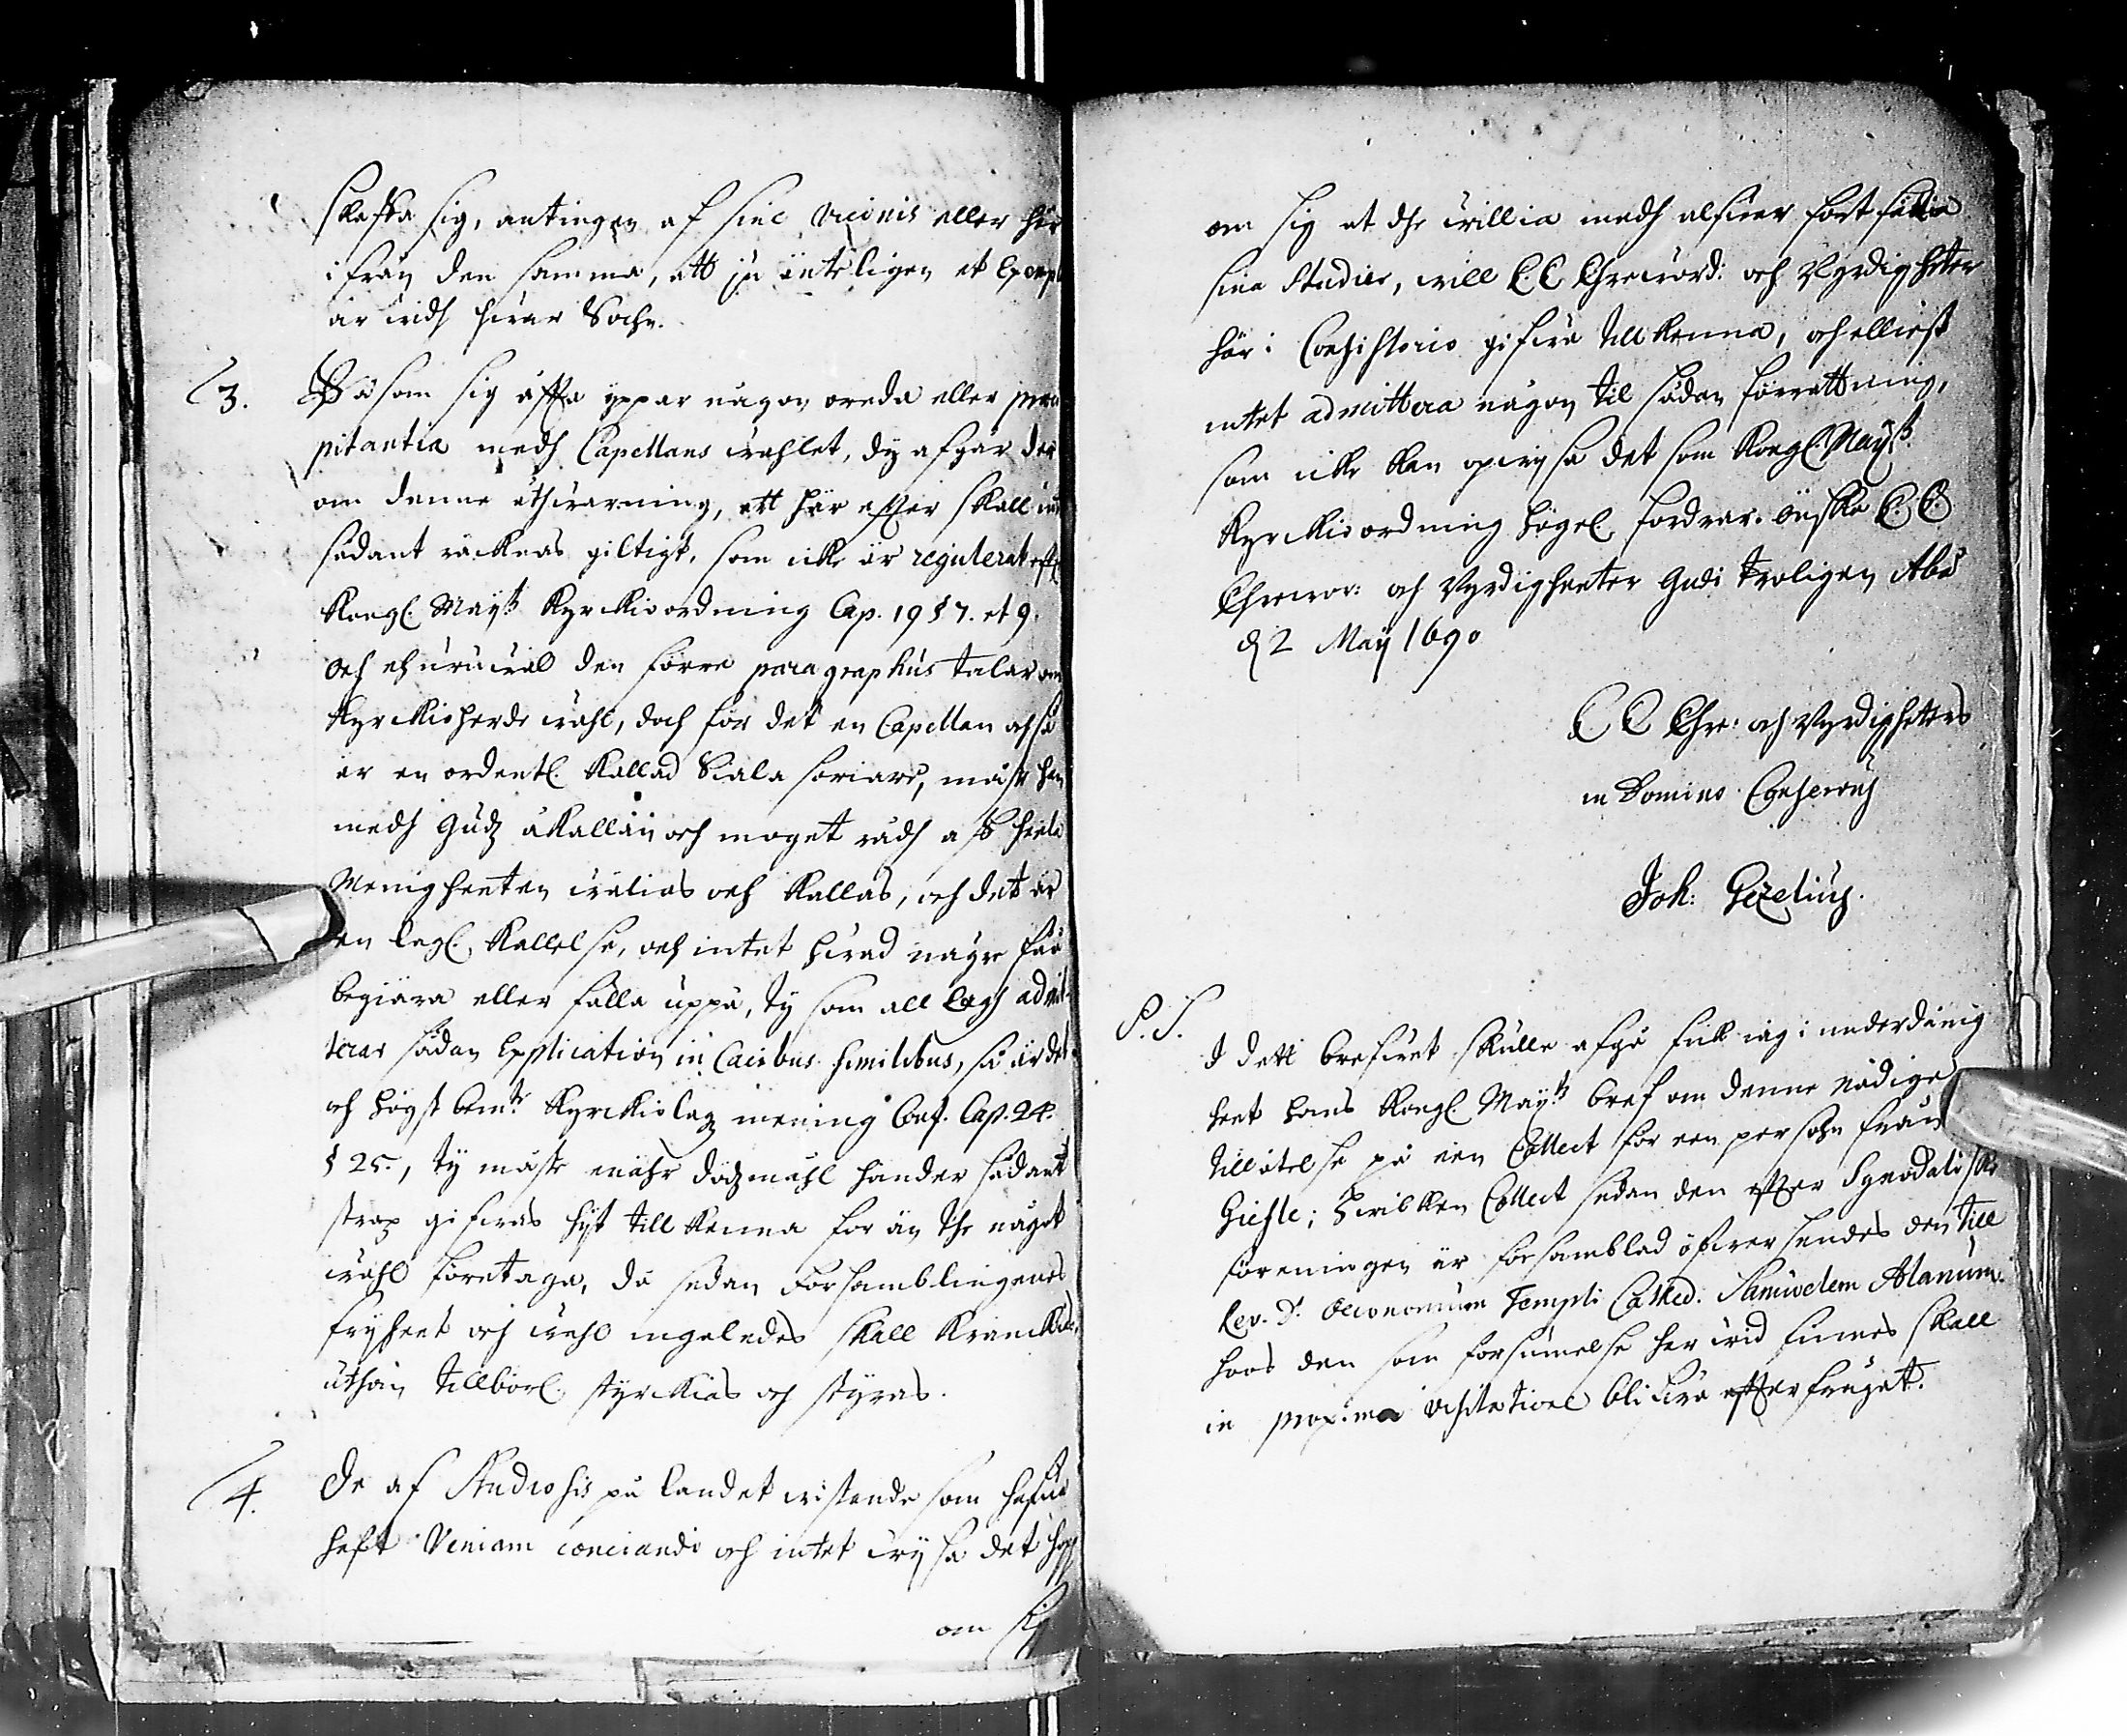 skaffa sig, antingen af sine vicinis eller här
ifrån den samma, att ju änteligen et Exemp
är widh hwar Sochn.
3. Såsom sig åffta yppar någon oreda eller præci
pitantia medh Capellans wahlet, dy afgår der
om denne åthwarning, att här effter skall int
sådant räcknas giltigt, som icke är regulerat efft
Kongl. Mayttz Kyrkioordning Cap. 19 § 7. et 9.
Och ehuruwäl den förre paragraphus talar om
Kyrkioherde wahl, doch for det en Capellan ochså
är en ordentl. kallad Siala söriare, måste han
medh Gudz åkallan och moget rådh aff heela
Menigheeten wälias och kallas, och det är
en lagl. kallelse, och intet hwad några få
begiära eller falla uppå, ty som all lagh admit-
terar sådan Explication in Casibus similibus, så är det
och högst bemte Kyrkiolagz mening Conf. Cap. 24.
§ 25., ty måste når dödzmåhl hånder sådant
strax gifwas hijt till kenna for än the något
wahl företaga, då sedan Forsamblingenes
fryheet och wahl ingaledes skall kränckias,
uthan tillbörl. styrkias och styras.
4. De af Studiosis på landet wistande som hafwa
haft Veniam concionandi och intet wysa det hopp
om sig
om sig at dhe willia medh alfwar fortsättia
sina Studier, will E. E. Ehrewörd: och Wyrdigheter
här i Consistorio gifwa tillkenna, och elliest
intet admittera någon til sådan förrettning,
som icke kan opwysa det som Kongl. Maytz
Kyrkioordning högel. fordrar. Önskar E. E.
Ehrewör: och Wyrdigheeter Gudi troligen Åbo
d 2 Maij 1690
E E Ehre: och Wyrdigheters
in Domino Conservus
Joh: Gezelius.
P.S.
I dett brefwet skulle afgå fick iag i underdånig
heet Hans Kongl. Maytz bref om denne nådige
tillåtelse på een Collect for een persohn från
Giefle; hwilken Collect sedan den effter Synodaliske
föreningen är församblad öfwersendes den till
Rev. D. Oeconomum Templi Cathed. Samuelem Alanum.
hoos den som forsummelse her wid finnes skall
in proxima visitatione blifwa effterfrågat.